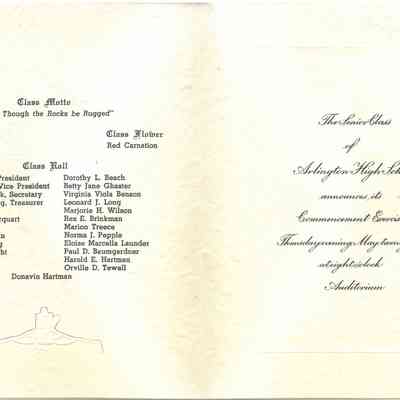 Class Motto
Though the Rocks be Rugged"
Class Flower
Red Carnation
Class Roll
President Dorothy L. Beach
Vice President Betty Jane Ghaster
Secretary Virginia Viola Benson
Treasurer Leonard J. Long
Marjorie H. Wilson
Rex E. Brinkman
Marion Treece
Norma J. Pepple
Eloise Marcella Launder
Paul D. Baumgardner
Harold E. Hartman
Orville D. Tewell
Donavin Hartman
The Senior Class
of
Arlington High
announces its
Commencement
Thursday evening, May
at eight o'clock
Auditorium